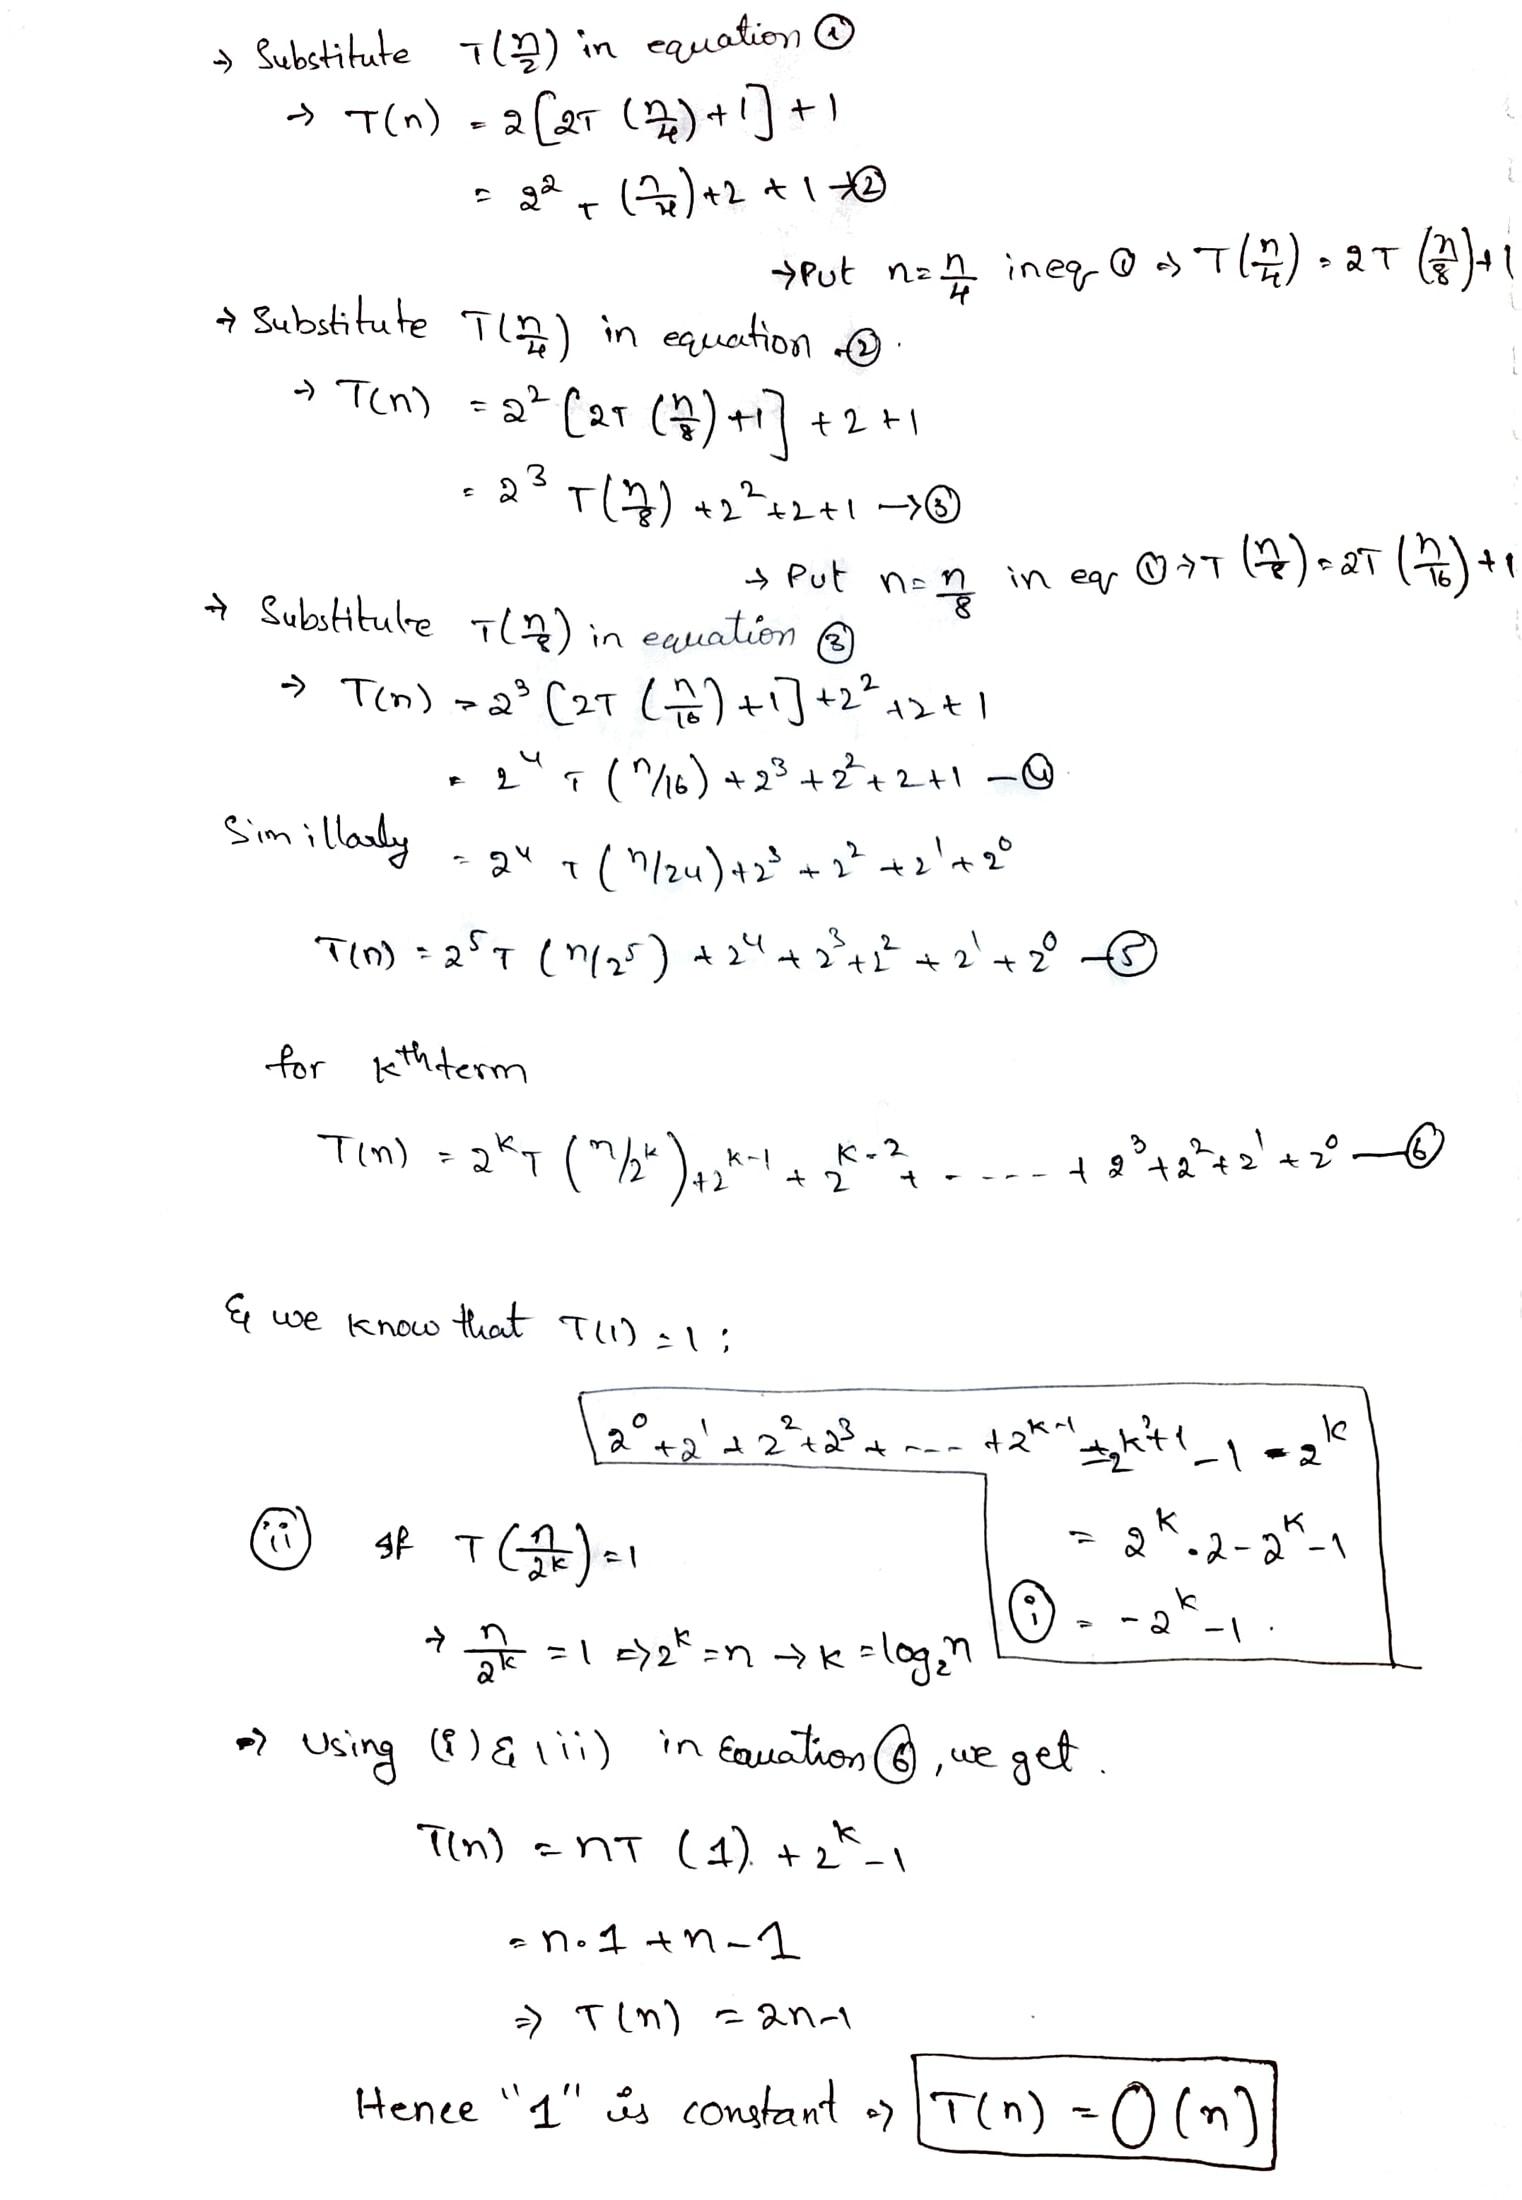 → Substitute T(n/2) in equation ①
→ T(n) = 2[2T (n/4) + 1] + 1
= 2² T (n/4) + 2 + 1 → ②
→ Put n = n/4 in eq ① ⇒ T(n/4) = 2T (n/8) + 1
→ Substitute T(n/4) in equation ②.
→ T(n) = 2² [2T (n/8) + 1] + 2 + 1
= 2³ T(n/8) + 2² + 2 + 1 → ③
→ Put n = n/8 in eq ① → T (n/8) = 2T (n/16) + 1
→ Substitute T(n/8) in equation ③
→ T(n) = 2³ [2T (n/16) + 1] + 2² + 2 + 1
= 2⁴ T (n/16) + 2³ + 2² + 2 + 1 — ④
Simillarly = 2⁴ T (n/24) + 2³ + 2² + 2¹ + 2⁰
T(n) = 2⁵ T (n/2⁵) + 2⁴ + 2³ + 2² + 2¹ + 2⁰ — ⑤
for kth term
T(n) = 2ᵏ T (n/2ᵏ) + 2ᵏ⁻¹ + 2ᵏ⁻² + ----- + 2³ + 2² + 2¹ + 2⁰ — ⑥
& we know that T(1) = 1 ;
2⁰ + 2¹ + 2² + 2³ + --- + 2ᵏ⁻¹ - 1 = 2ᵏ
= 2ᵏ . 2 - 2ᵏ - 1
(i) = - 2ᵏ - 1 .
(ii) If T (n/2ᵏ) = 1
→ n/2ᵏ = 1 ⇒ 2ᵏ = n → k = log₂n
⇒ Using (i) & (ii) in Equation ⑥, we get .
T(n) = nT (1) + 2ᵏ - 1
= n . 1 + n - 1
⇒ T(n) = 2n-1
Hence "1" is constant ⇒ T(n) = O(n)